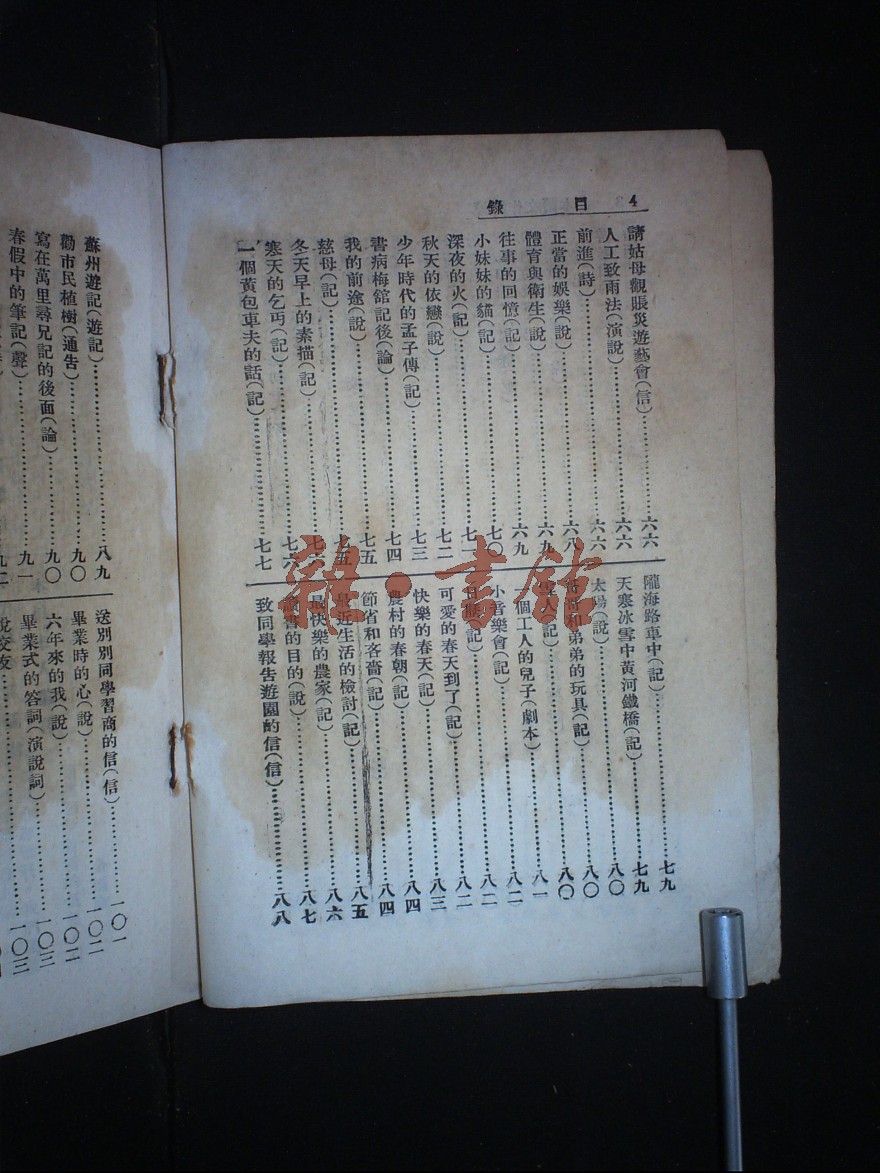 4 目 錄
請姑母觀賬災遊藝會(信)……六六
人工致雨法(演說)……六六
前進(詩)……六六
正當的娛樂(說)……六八
體育與衛生(說)……六九
往事的回憶(記)……六九
小妹妹的貓(記)……七〇
深夜的火(記)……七一
秋天的依戀(說)……七二
少年時代的孟子傳(記)……七三
書病梅館記後(論)……七四
我的前途(說)……七五
慈母(記)……七五
冬天早上的素描(記)……七六
寒天的乞丐(記)……七六
一個黃包車夫的話(記)……七七
隴海路車中(記)……七九
天寒冰雪中黃河鐵橋(記)……七九
太陽(說)……八〇
和弟弟的玩具(記)……八〇
人(記)……八〇
一個工人的兒子(劇本)……八一
小音樂會(記)……八二
(記)……八二
可愛的春天到了(記)……八二
快樂的春天(記)……八三
農村的春朝(記)……八四
節省和客嗇(記)……八四
最近生活的檢討(記)……八五
最快樂的農家(記)……八六
讀書的目的(說)……八七
致同學報告遊園的信(信)……八八
蘇州遊記(遊記)……八九
勸市民植樹(通告)……九〇
寫在萬里尋兄記的後面(論)……九〇
春假中的筆記(聲)……九一
九二
送別別同學習商的信(信)……一〇一
畢業時的心(說)……一〇二
六年來的我(說)……一〇二
畢業式的答詞(演說詞)……一〇三
說交友……一〇三
雜·書館